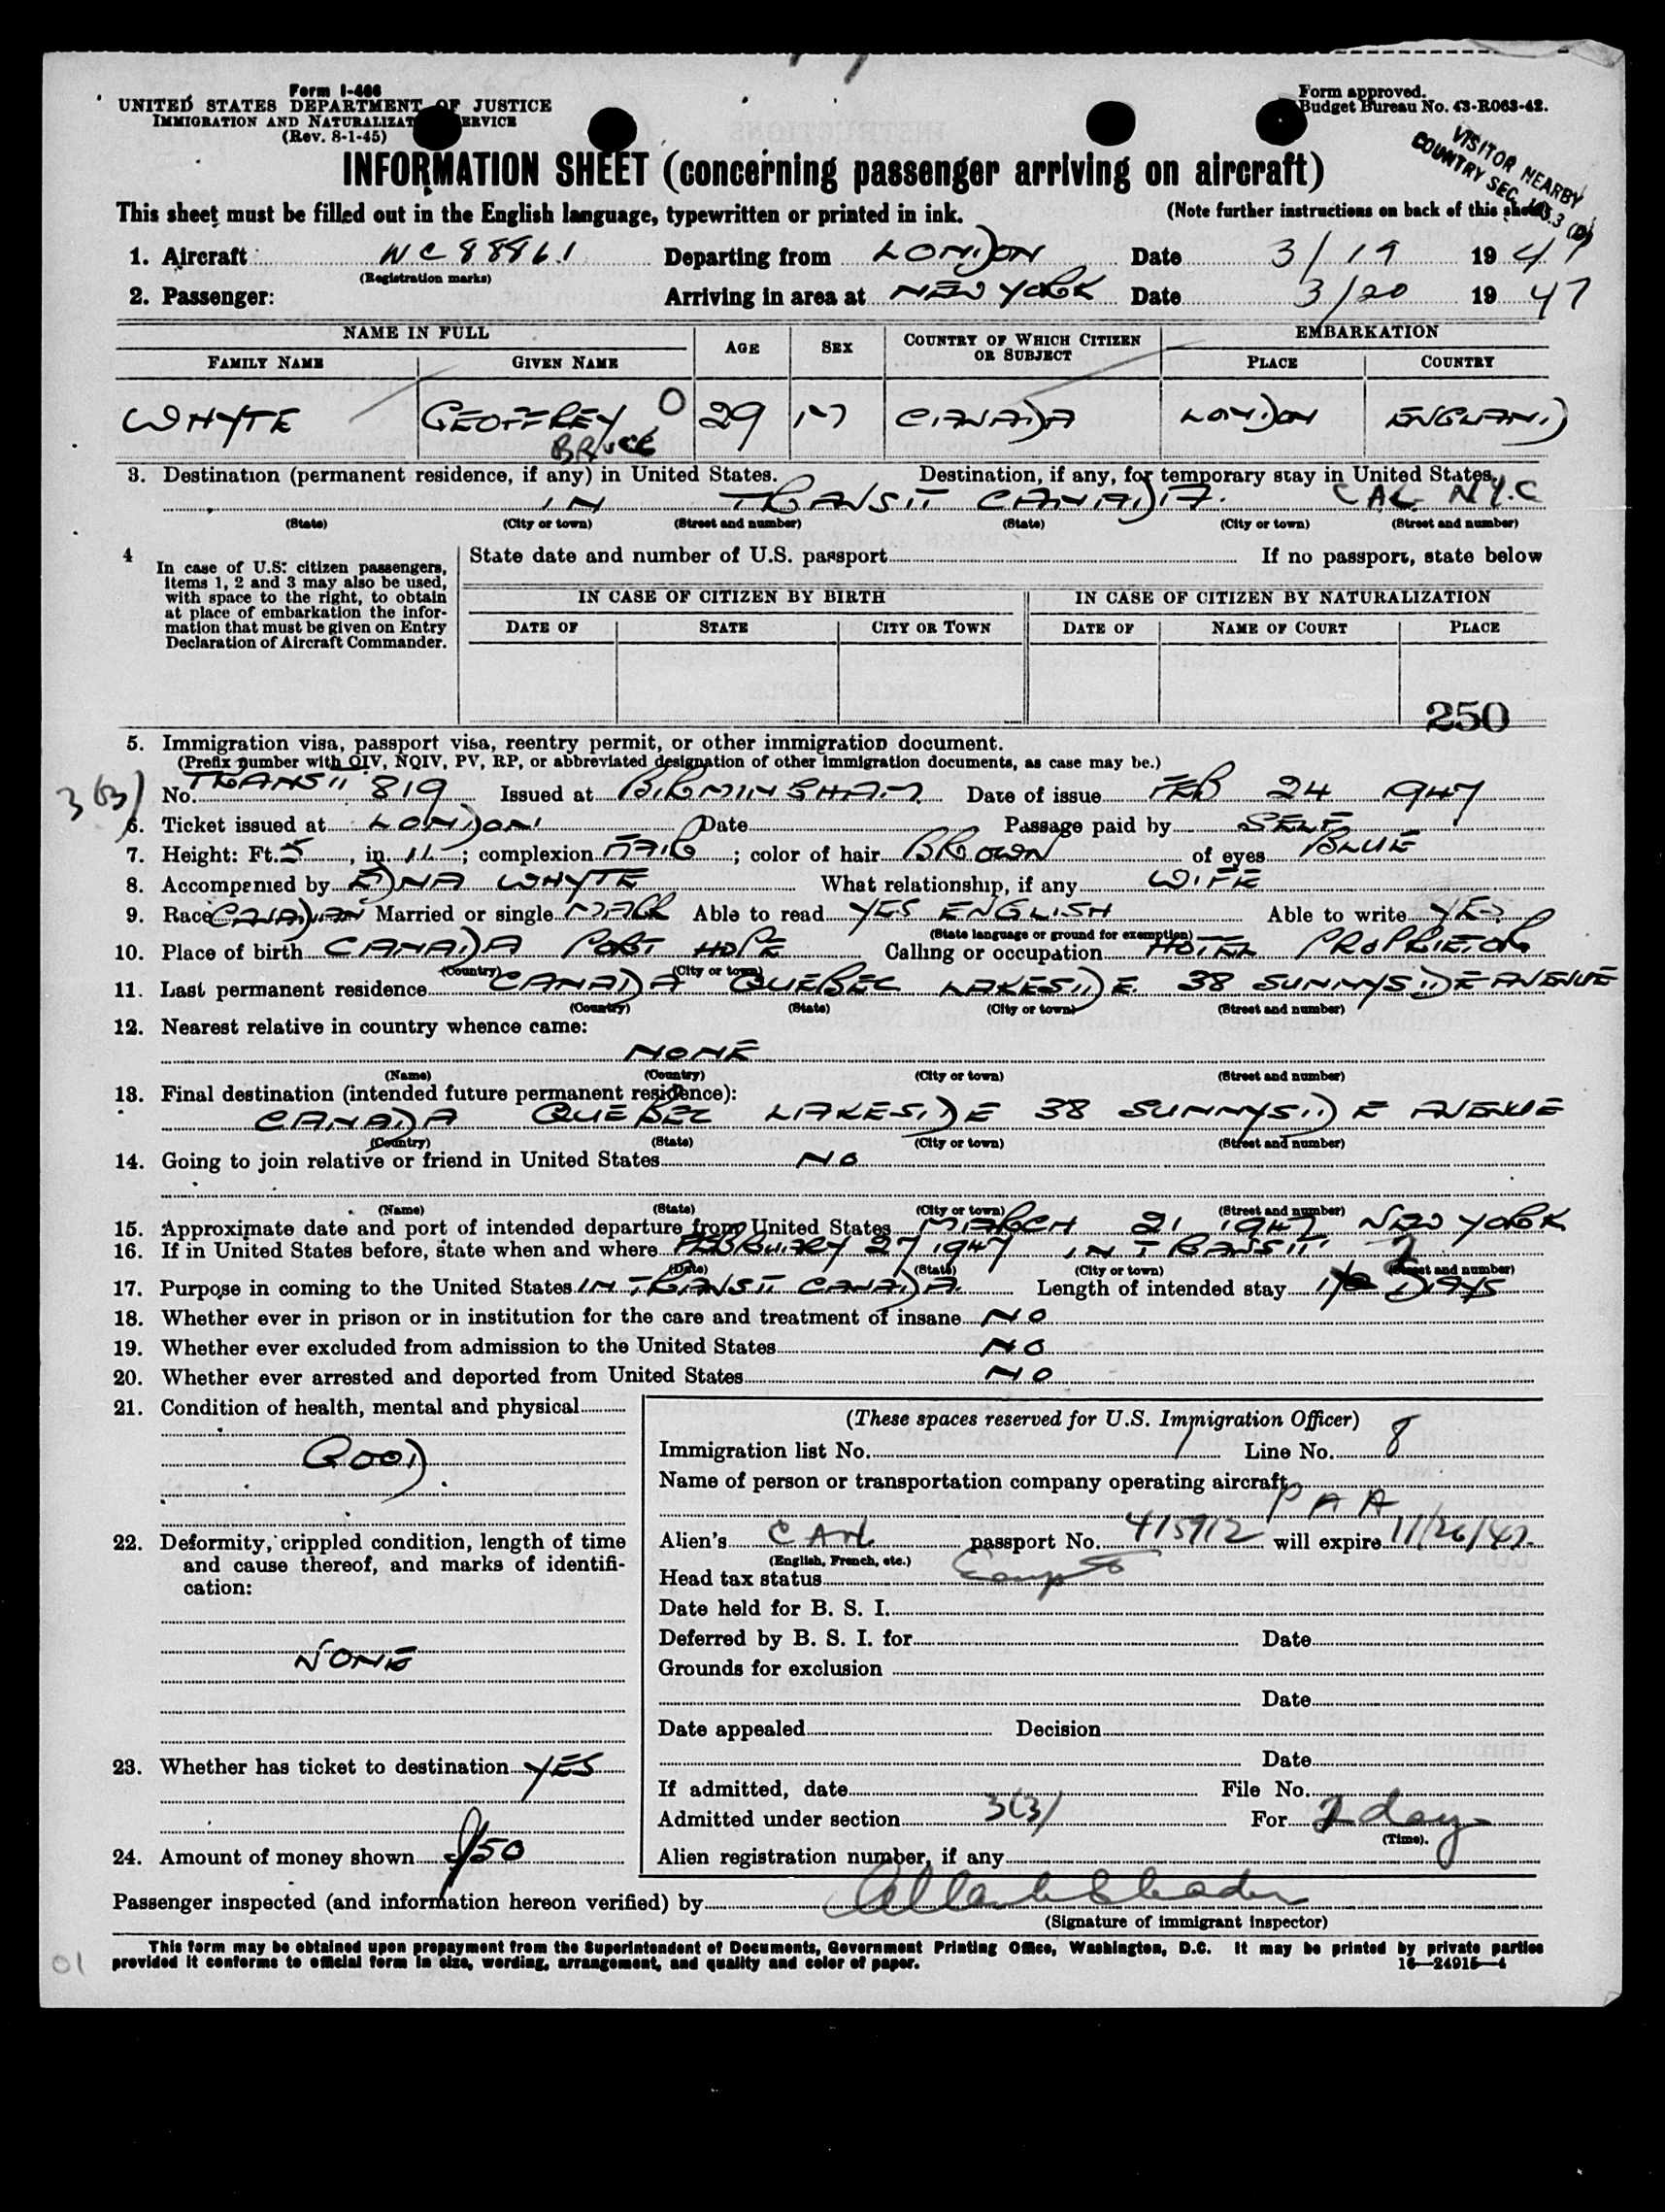 Form I-466
UNITED STATES DEPARTMENT OF JUSTICE
IMMIGRATION AND NATURALIZAT ERVICE
(Rev. 8-1-45)
Form approved.
Budget Bureau No. 43-R063-42.
VISITOR NEARBY
COUNTRY SEC.
INFORMATION SHEET (concerning passenger arriving on aircraft)
This sheet must be filled out in the English language, typewritten or printed in ink. (Note further instructions on back of this sheet)
1. Aircraft NC 88861 Departing from LONDON Date 3/19 1947
(Registration marks)
2. Passenger: Arriving in area at NEW YORK Date 3/20 1947
NAME IN FULL AGE SEX COUNTRY OF WHICH CITIZEN OR SUBJECT EMBARKATION
FAMILY NAME GIVEN NAME PLACE COUNTRY
WHYTE GEOFFREY O 29 M CANADA LONDON ENGLAND
BRUCE
3. Destination (permanent residence, if any) in United States. Destination, if any, for temporary stay in United States.
IN TRANSIT CANADA. CAL N.Y.C
(State) (City or town) (Street and number) (State) (City or town) (Street and number)
4 In case of U.S. citizen passengers, items 1, 2 and 3 may also be used, with space to the right, to obtain at place of embarkation the information that must be given on Entry Declaration of Aircraft Commander.
State date and number of U.S. passport If no passport, state below
IN CASE OF CITIZEN BY BIRTH IN CASE OF CITIZEN BY NATURALIZATION
DATE OF STATE CITY OR TOWN DATE OF NAME OF COURT PLACE
250
5. Immigration visa, passport visa, reentry permit, or other immigration document.
(Prefix number with QIV, NQIV, PV, RP, or abbreviated designation of other immigration documents, as case may be.)
3(3) No. TRANSIT 819 Issued at BIRMINGHAM Date of issue FEB 24 1947
6. Ticket issued at LONDON Date Passage paid by SELF
7. Height: Ft. 5, in. 11; complexion FAIR; color of hair BROWN of eyes BLUE
8. Accompanied by EDNA WHYTE What relationship, if any WIFE
9. Race CANADIAN Married or single MARR Able to read YES ENGLISH Able to write YES
(State language or ground for exemption)
10. Place of birth CANADA PORT HOPE Calling or occupation HOTEL PROPRIETOR
(Country) (City or town)
11. Last permanent residence CANADA QUEBEC LAKESIDE 38 SUNNYSIDE AVENUE
(Country) (State) (City or town) (Street and number)
12. Nearest relative in country whence came:
NONE
(Name) (Country) (City or town) (Street and number)
13. Final destination (intended future permanent residence):
CANADA QUEBEC LAKESIDE 38 SUNNYSIDE AVENUE
(Country) (State) (City or town) (Street and number)
14. Going to join relative or friend in United States NO
(Name) (State) (City or town) (Street and number)
15. Approximate date and port of intended departure from United States MARCH 21 1947 NEW YORK
16. If in United States before, state when and where FEBRUARY 27 1947 IN TRANSIT
(Date) (State) (City or town) (Street and number)
17. Purpose in coming to the United States IN TRANSIT CANADA. Length of intended stay DAYS
18. Whether ever in prison or in institution for the care and treatment of insane NO
19. Whether ever excluded from admission to the United States NO
20. Whether ever arrested and deported from United States NO
21. Condition of health, mental and physical
GOOD.
22. Deformity, crippled condition, length of time and cause thereof, and marks of identification:
NONE
23. Whether has ticket to destination YES
24. Amount of money shown $50
(These spaces reserved for U.S. Immigration Officer)
Immigration list No. 1 Line No. 8
Name of person or transportation company operating aircraft
PAA
Alien's CAN passport No. 415912 will expire 11/26/47
(English, French, etc.)
Head tax status
Date held for B. S. I.
Deferred by B. S. I. for Date
Grounds for exclusion
Date
Date appealed Decision
Date
If admitted, date File No.
Admitted under section 3(3) For 2 days
(Time).
Alien registration number, if any
Passenger inspected (and information hereon verified) by
(Signature of immigrant inspector)
This form may be obtained upon prepayment from the Superintendent of Documents, Government Printing Office, Washington, D.C. It may be printed by private parties
provided it conforms to official form in size, wording, arrangement, and quality and color of paper. 16—24915—4